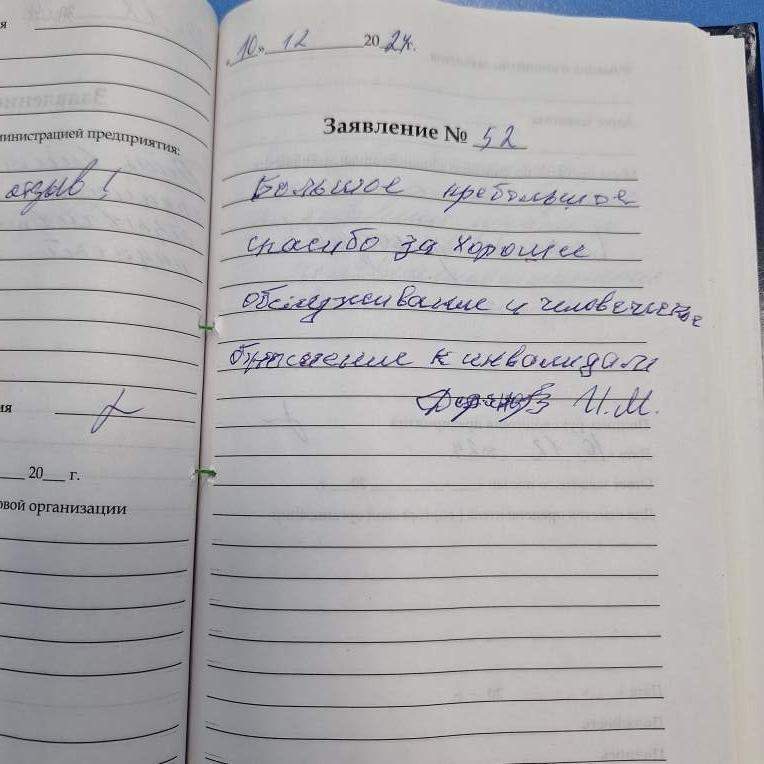 я
министрацией предприятия:
отзыв!
ия
20 г.
овой организации
«10» 12 2024г.
Заявление № 52
Большое пребольшое
спасибо за хорошее
обслуживание и человеческое
отношение к инвалидам
И.М.